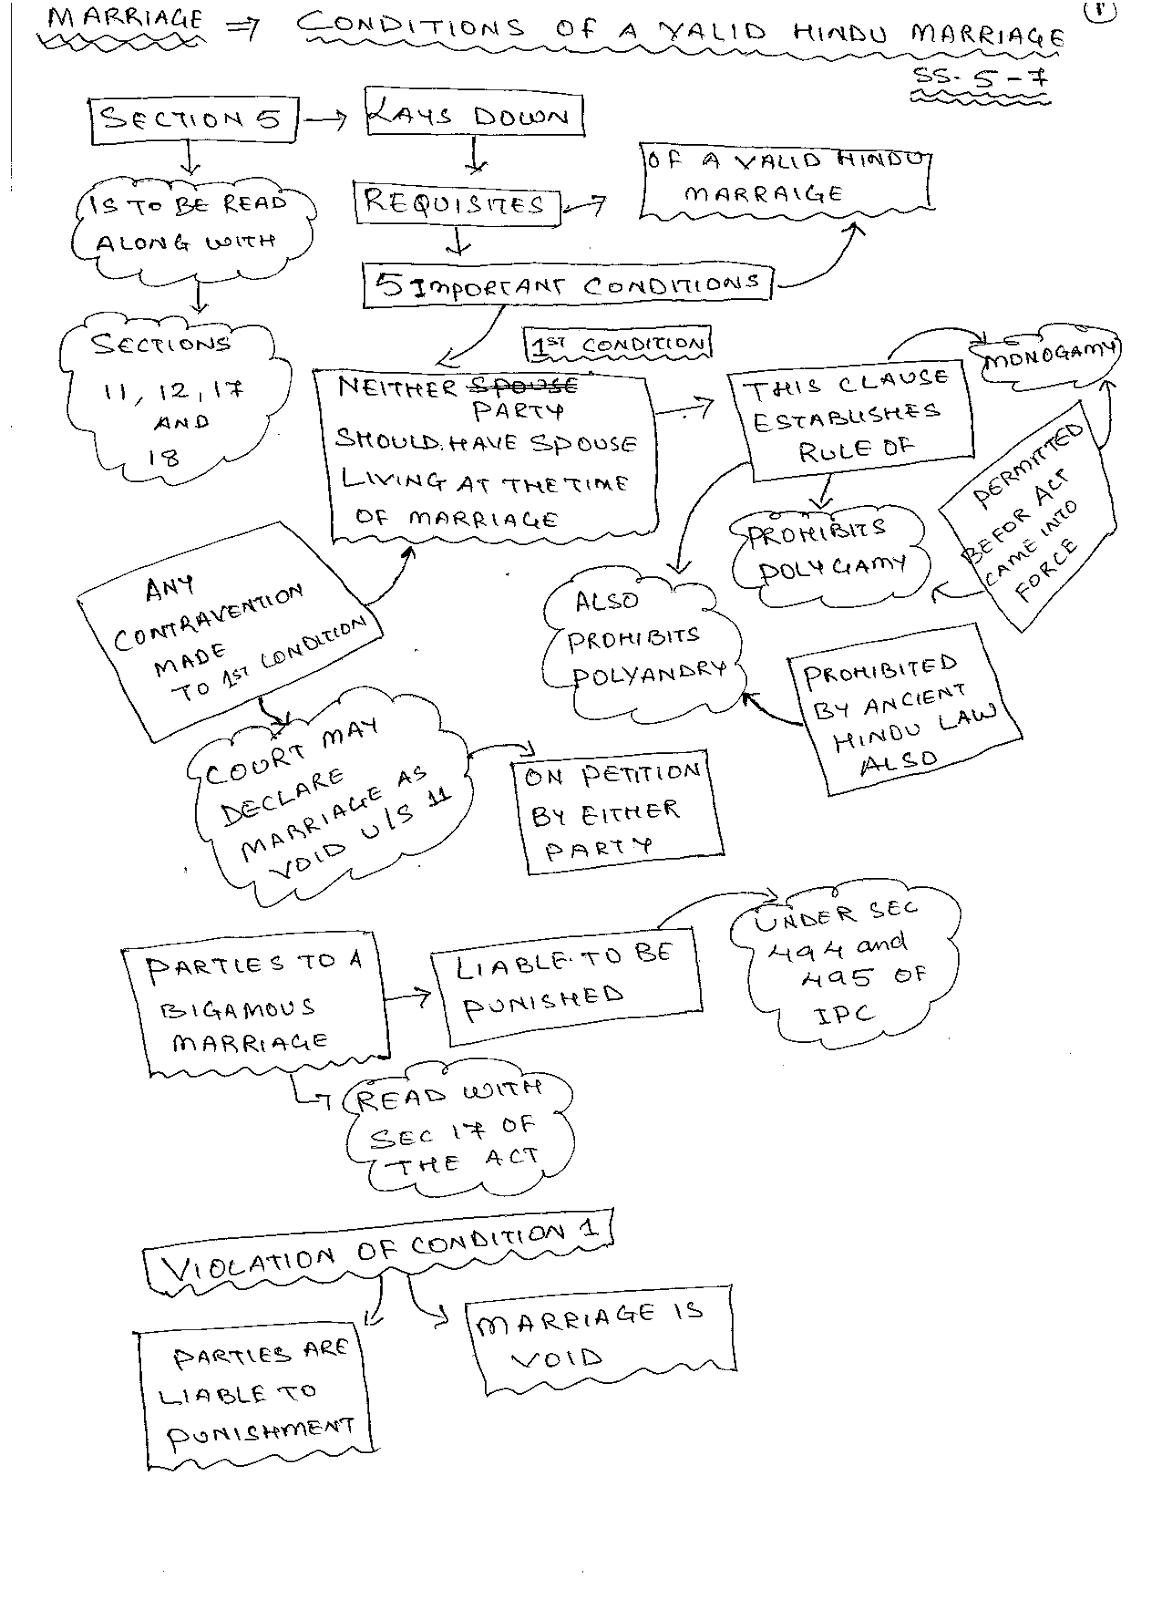 MARRIAGE ⇒ CONDITIONS OF A VALID HINDU MARRIAGE
SS. 5-7
SECTION 5 → LAYS DOWN
OF A VALID HINDU
MARRAIGE
IS TO BE READ
ALONG WITH
REQUISITES
5 IMPORTANT CONDITIONS
SECTIONS
11, 12, 17
AND
18
1ST CONDITION
NEITHER SPOUSE
PARTY
SHOULD HAVE SPOUSE
LIVING AT THE TIME
OF MARRIAGE
THIS CLAUSE
ESTABLISHES
RULE OF
MONOGAMY
PERMITTED
BEFOR ACT
CAME INTO
FORCE
PROHIBITS
POLYGAMY
ALSO
PROHIBITS
POLYANDRY
PROHIBITED
BY ANCIENT
HINDU LAW
ALSO
ANY
CONTRAVENTION
MADE
TO 1ST CONDITION
COURT MAY
DECLARE
MARRIAGE AS
VOID U/S 11
ON PETITION
BY EITHER
PARTY
PARTIES TO A
BIGAMOUS
MARRIAGE
LIABLE TO BE
PUNISHED
UNDER SEC
494 and
495 OF
IPC
READ WITH
SEC 17 OF
THE ACT
VIOLATION OF CONDITION 1
PARTIES ARE
LIABLE TO
PUNISHMENT
MARRIAGE IS
VOID